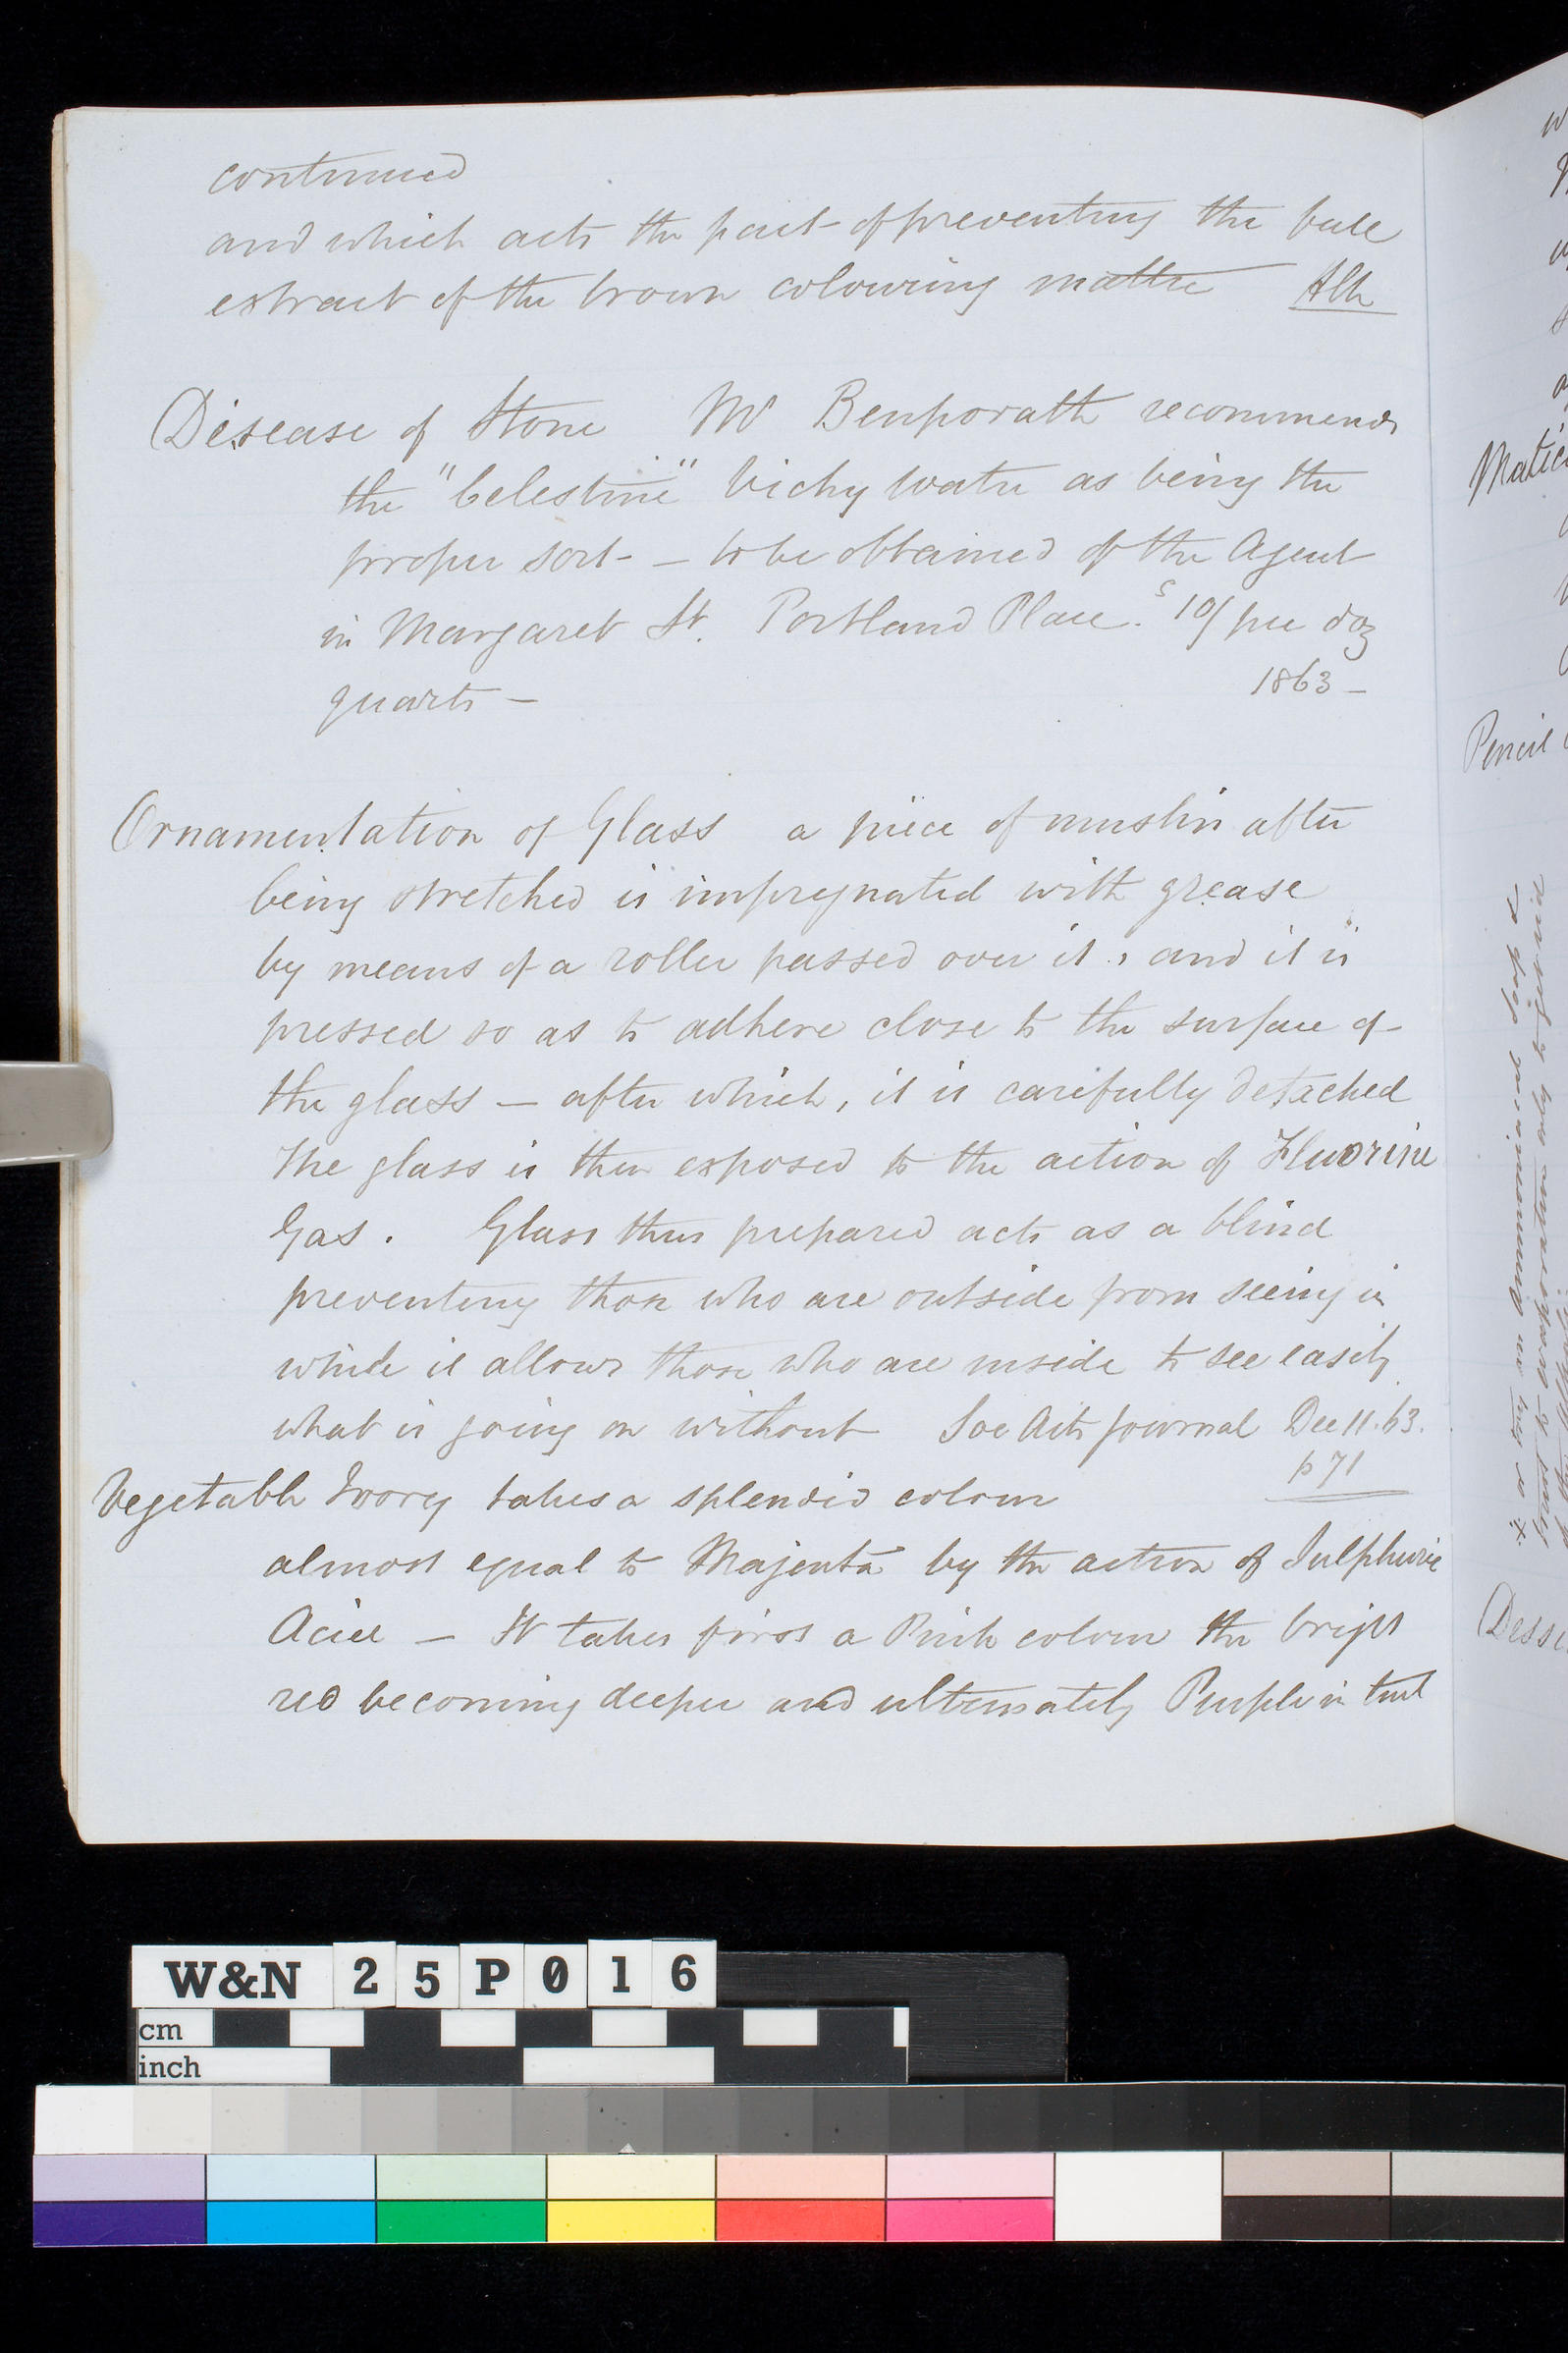 continued
and which acts the part of preventing the full
extract of the brown colouring matter
Disease of Stone Mr Benporath recommends
the "Celestine" Vichy Water as being the
proper sort — to be obtained of the Agent
in Margaret St. Portland Place. s 10/ per doz
quarts — 1863 —
Ornamentation of Glass a piece of muslin after
being stretched is impregnated with grease
by means of a roller passed over it, and it is
pressed so as to adhere close to the surface of
the glass — after which, it is carefully detached
The glass is then exposed to the action of Fluorine
Gas. Glass thus prepared acts as a blind
preventing those who are outside from seeing in
while it allows those who are inside to see easily
what is going on without Soc Arts Journal Dec 11. 63.
p 71
Vegetable Ivory takes a splendid colour
almost equal to Majenta by the action of Sulphuric
Acid — It takes first a Pink colour the bright
red becoming deeper and ultimately Purple in tint
Pencil
W&N 25P016
cm
inch